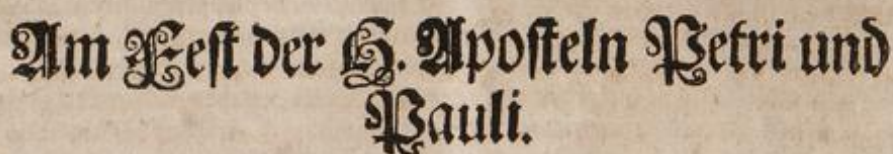 Am Fest der H. Aposteln Petri und
Pauli.